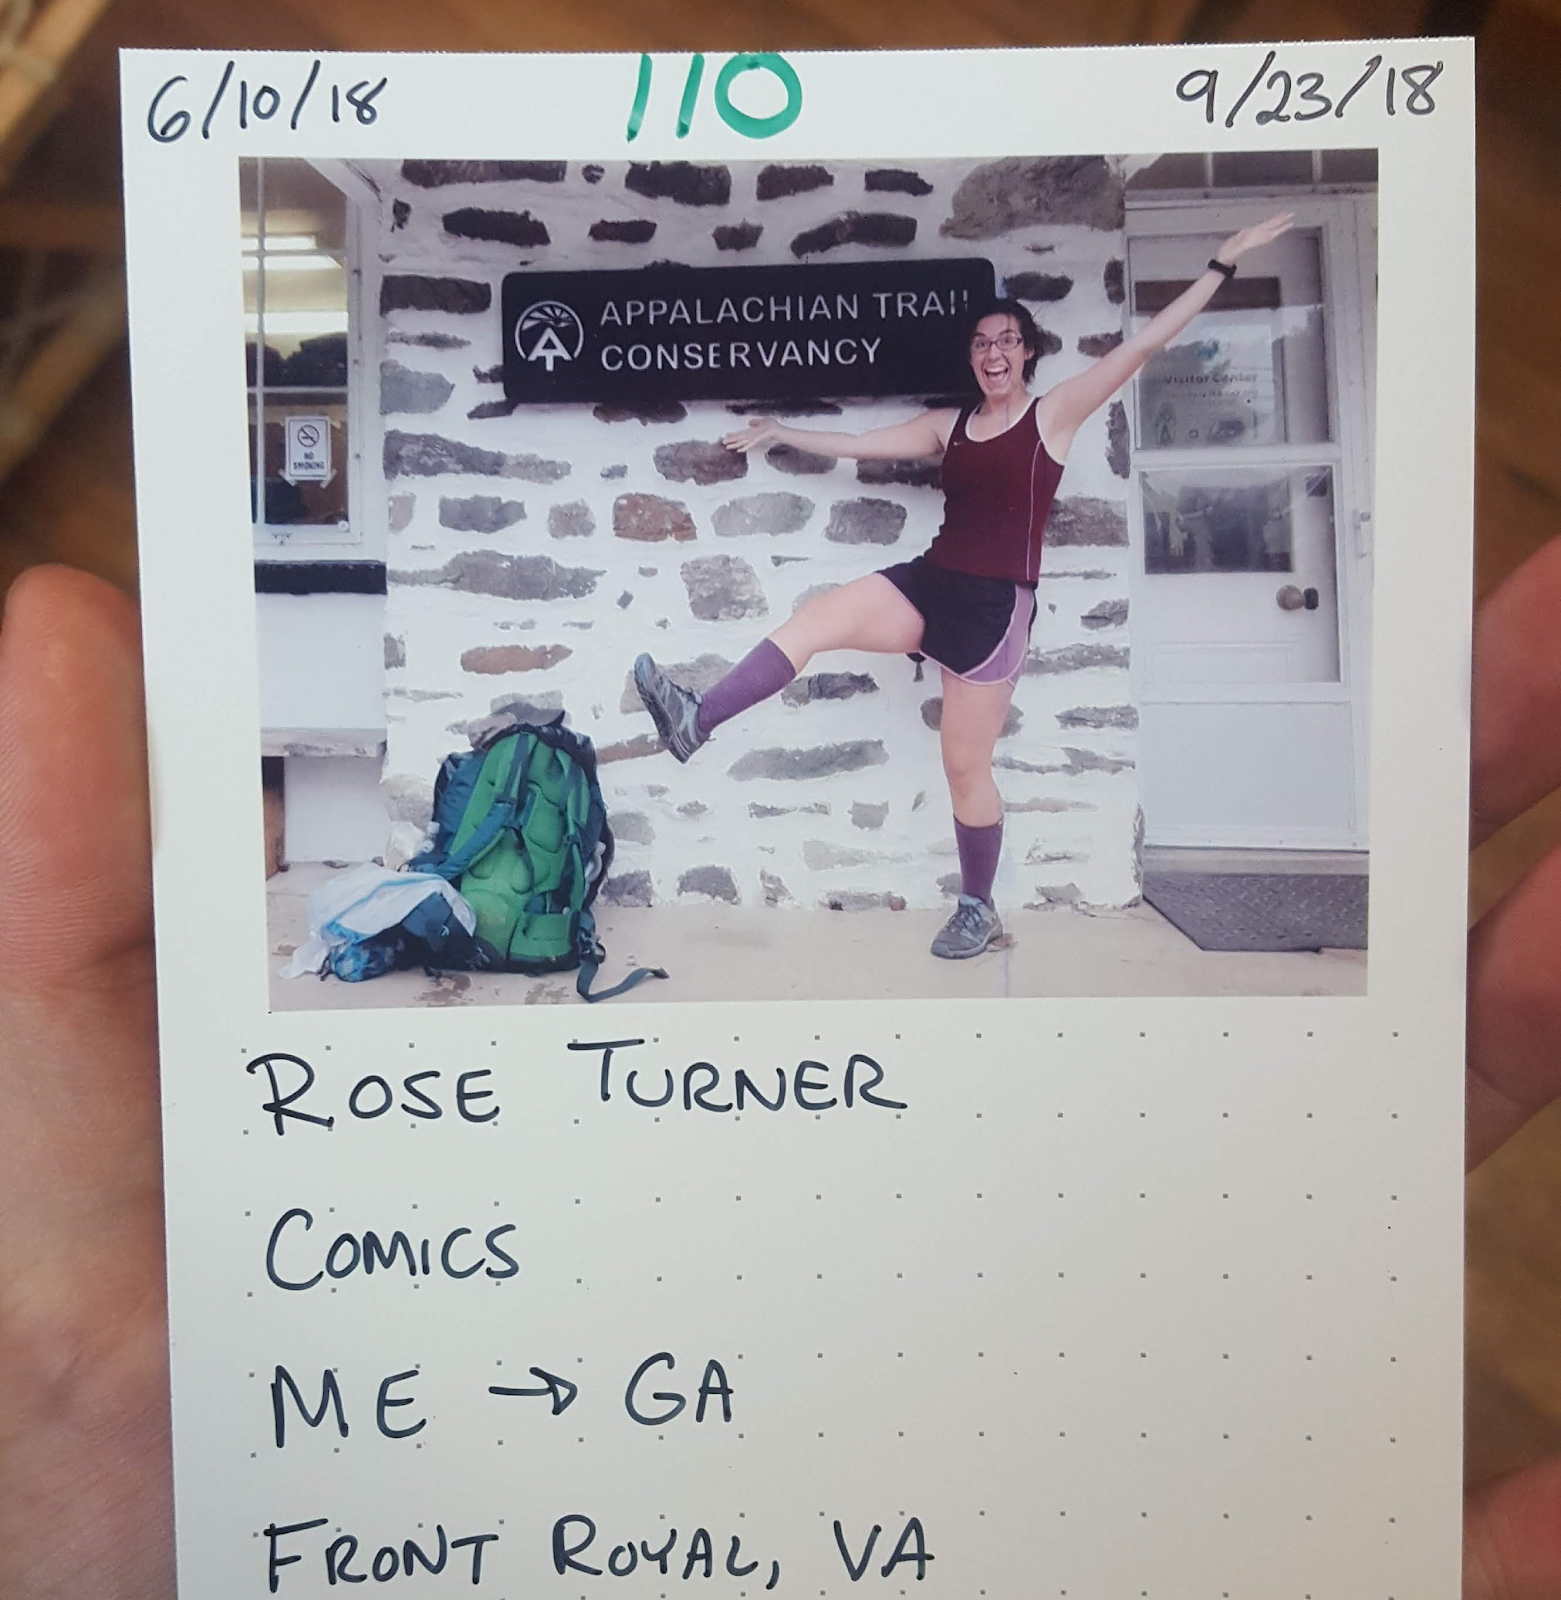 6/10/18 110 9/23/18
APPALACHIAN TRAIL
CONSERVANCY
NO
SMOKING
Visitor Center
ROSE TURNER
COMICS
ME → GA
FRONT ROYAL, VA